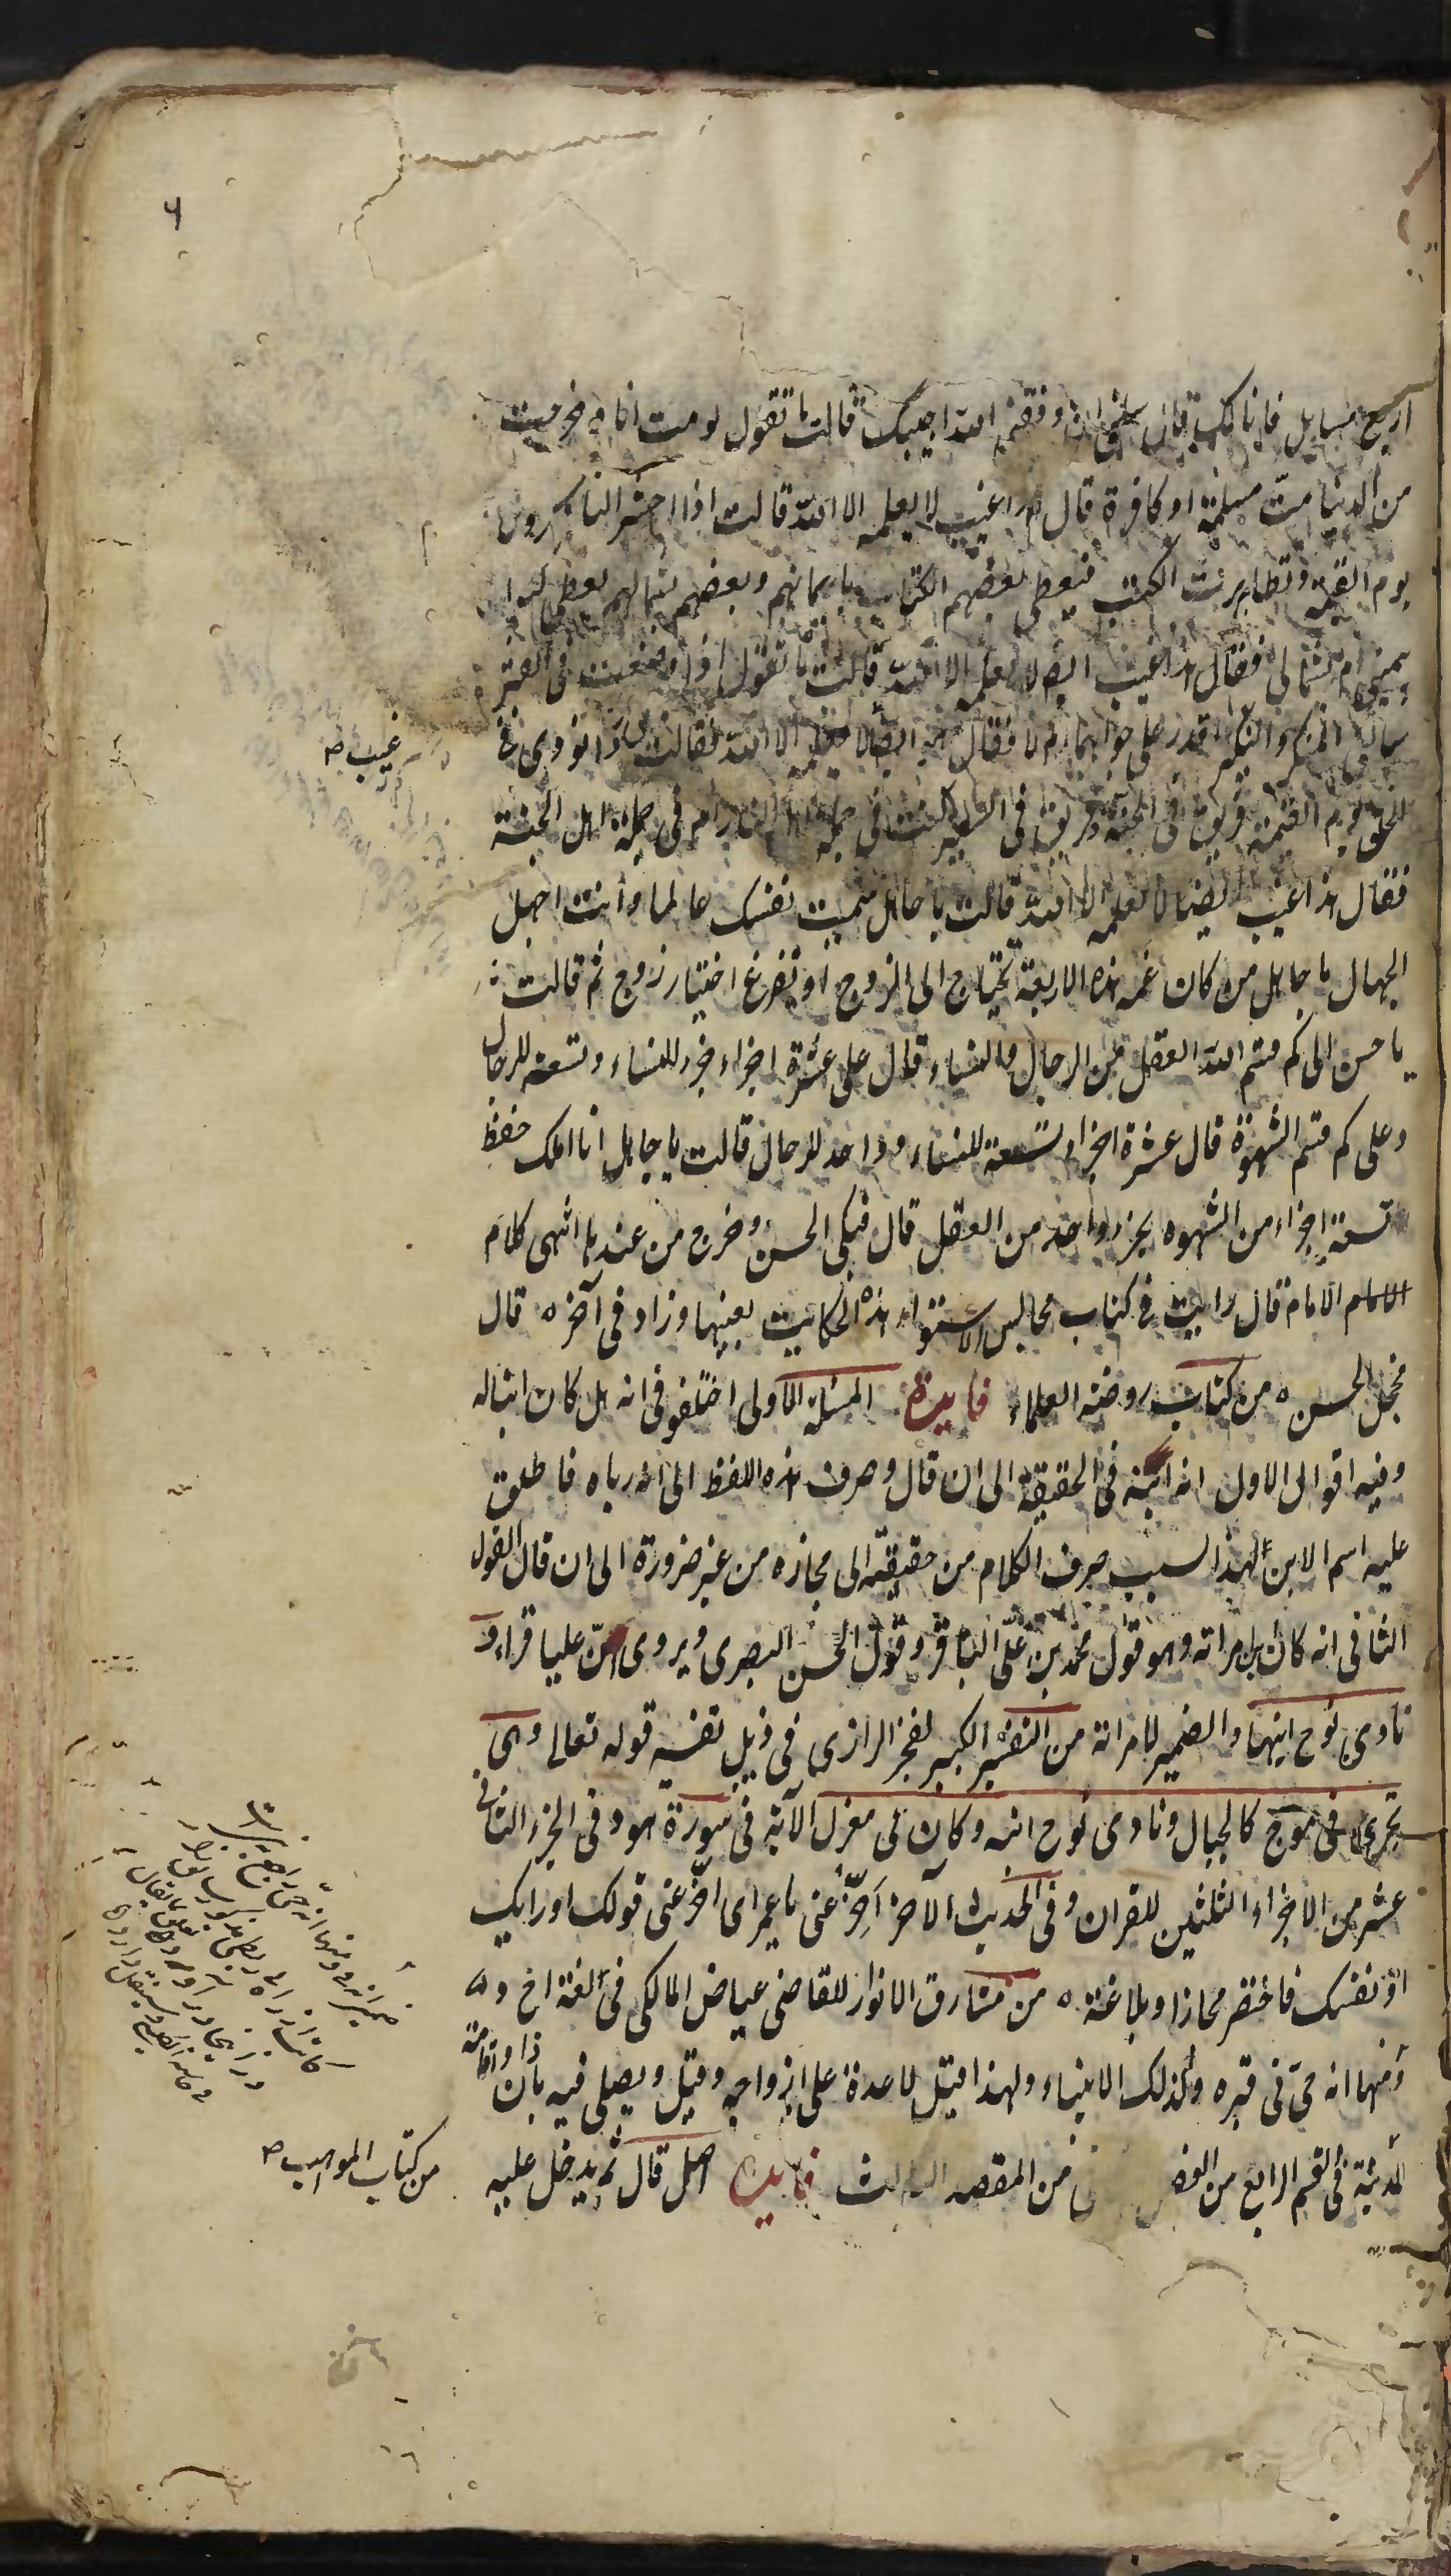 ٦
اربع مسايل فانا لك قال سلي ان وفقني الله اجيبك قالت ما تقول لو مت انا وخرجت
من الدنيا مت مسلمة او كافرة قال هذا غيب لا يعلمه الا الله قالت اذا حشر الناس
يوم القيمة وتطايرت الكتب فيعطى بعضهم الكتاب بايمانهم وبعضهم بشمالهم يعطى
بيميني ام بشمالي فقال هذا غيب ايضا لا يعلمه الا الله قالت ما تقول اذا وضعت في القبر
سالني المنكر والنكير اقدر على جوابهما ام لا فقال ايضا لا يعلمه الا الله فقالت اذا نودي في
غيب صح
الخلق يوم القيمة فريق في الجنة وفريق في السعير كنت في جملة اهل النار ام في جملة اهل الجنة
فقال هذا غيب ايضا لا يعلمه الا الله قالت يا جاهل سميت نفسك عالما وانت اجهل
الجهال يا جاهل من كان غمه هذه الاربعة يحتاج الى الزوج او تفرغ اختيار زوج ثم قالت
يا حسن الى كم قسم الله العقل بين الرجال والنساء قال على عشرة اجزاء جزء للنساء وتسعة للرجال
وعلى كم قسم الشهوة قال عشرة اجزاء تسعة للنساء وواحد للرجال قالت يا جاهل انا املك حفظ
تسعة اجزاء من الشهوه بجزء واحد من العقل قال فبكى الحسن وخرج من عندها انتهى كلام
الامام الامام قال رايت في كتاب مجالس الاستواء هذه الحكايت بعينها وزاد في آخره قال
فخجل الحسن ه من كتاب روضة العلماء فايدة المسئلة الاولى اختلفو في انه هل كان ابنا له
وفيه اقوال الاول انه ابنه في الحقيقة الى ان قال وصرف هذه اللفظ الى انه رباه فاطلق
عليه اسم الابن لهذا السبب صرف الكلام من حقيقته الى مجازه من غير ضرورة الى ان قال القول
الثاني انه كان ابن امراته وهو قول محمد بن علي الباقر وقول الحسن البصري ويروى ان عليا قراء و
نادى نوح ابنها والضمير لامراته من التفسير الكبير لفخر الرازي في ذيل تفسير قوله تعالى وهي
تجري في موج كالجبال ونادى نوح ابنه وكان في معزل الآية في سورة هود في الجزء الثاني
عشر من الاجزاء الثلثين للقران وفي الحديث الآخر اخر عني يا عمر اي اخر عني قولك او رايك
او نفسك فاختصر مجازا وبلاغة ه من مشارق الانوار للقاضي عياض المالكي في لغة اخ ر ه
ومنها انه حي في قبره وكذلك الانبياء ولهذا قيل لا عدة على ازواجه وقيل ويصلي فيه باذان واقامة
في القسم الرابع من الفصل من المقصد الثالث فايدة اصل قال ثم يدخل عليه
من كتاب المواهب صح